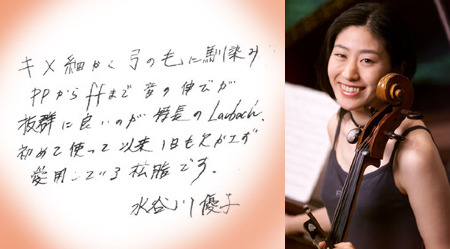 キメ細かく弓の毛に馴染み
ppからffまで音の伸びが
抜群に良いのが特長のLaubach.
初めて使って以来1日も欠かさず
愛用している松脂です。
水谷川優子